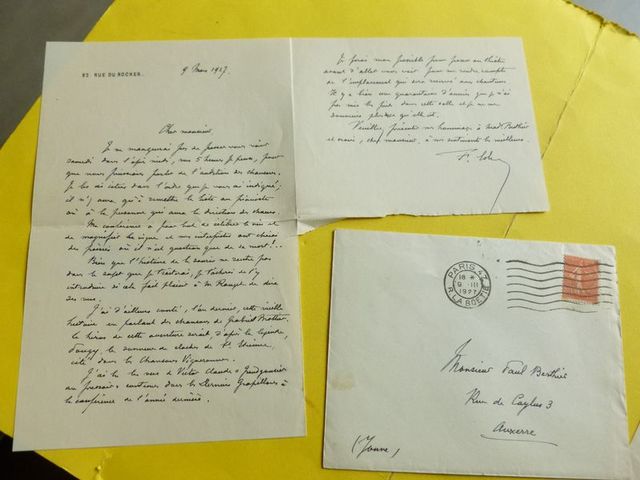 83 RUE DU ROCHER.
9 Mars 1927.
Cher monsieur,
Je ne manquerai pas de passer vous voir
samedi dans l'après midi, vers 5 heures je pense, pour
que nous puissions parler de l'audition des chansons.
Je les ai citées dans l'ordre que je vous ai indiqué;
il n'y aura qu'à remettre la liste au pianiste
ou à la personne qui aura la direction des chœurs.
Ma conférence a pour but de célébrer le vin et
de magnifier la vigne et vos interprètes ont choisi
des poésies où il n'est question que de sa mort!...
Bien que l'histoire de la souris ne rentre pas
dans le sujet que je traiterai, je tâcherai de l'y
introduire si cela fait plaisir à M. de dire
ces vers.
J'ai d'ailleurs conté, l'an dernier, cette vieille
histoire en parlant des chansons de Gabriel
le héros de cette aventure serait, d'après la légende,
le sonneur de cloches de St Etienne,
cité dans les Chansons Vigneronnes.
J'ai lu les vers de Victor Claude
au contenus dans les Derniers Grapillons à
la conférence de l'année dernière.
Je ferai mon possible pour passer au théâtre
avant d'aller vous voir pour me rendre compte
de l'emplacement qui sera réservé aux chanteurs
Il y a bien une quarantaine d'années que je n'ai
pas mis les pieds dans cette salle et je ne me
souviens plus
Veuillez présenter mes hommages à Mad. Berthier
et croire, cher monsieur, à mes sentiments les meilleurs.
PARIS 47
18
9 III
1927
R. LA BOETIE
Monsieur Paul Berthier
Rue de Caylus 3
Auxerre
(Yonne)